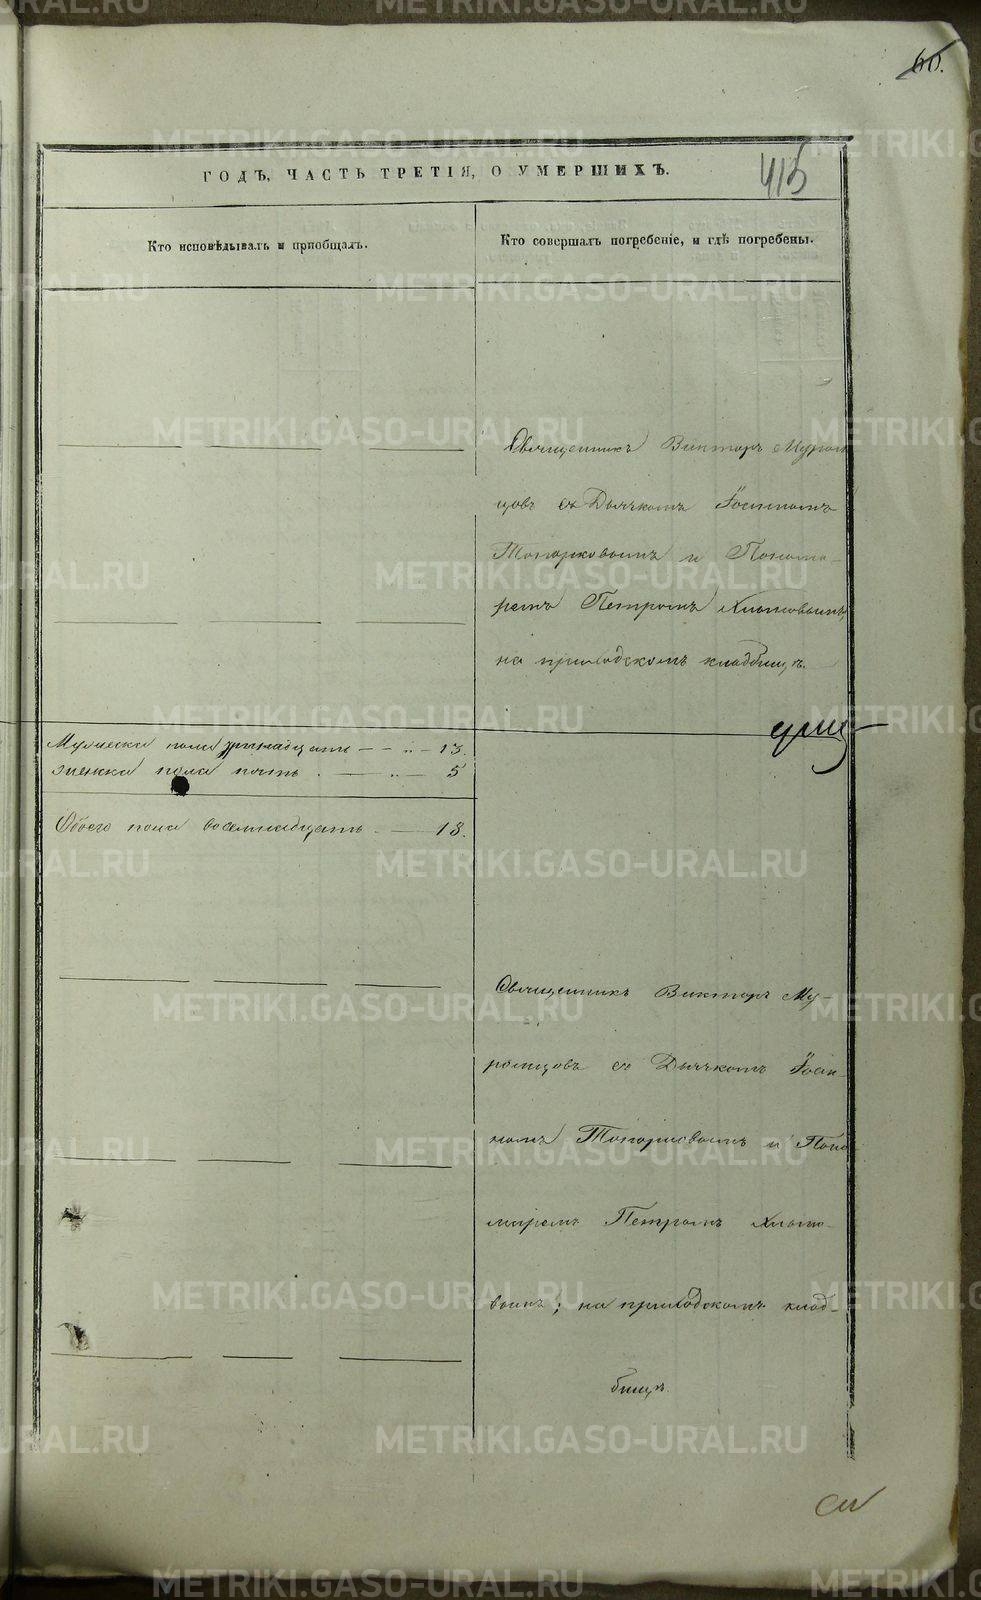 60.
415
ГОДЪ, ЧАСТЬ ТРЕТІЯ, О УМЕРШИХЪ.
Кто исповѣдывалъ и пріобщалъ.
Кто совершалъ погребеніе, и гдѣ погребены.
Священникъ Викторъ Муром
цовъ съ Дьячкомъ Іоанномъ
Топорковымъ и Понома-
ремъ Петромъ
на приходскомъ кладбищѣ.
Мужеска пола тринадцать — 13.
женска пола пять. — 5
Обоего пола восемнадцать — 18.
Священникъ Викторъ Му-
ромцовъ съ Дьячкомъ Іоан-
номъ Топорковымъ и Поно
маремъ Петромъ
вымъ; на приходскомъ клад-
бищѣ.
METRIKI.GASO-URAL.RU